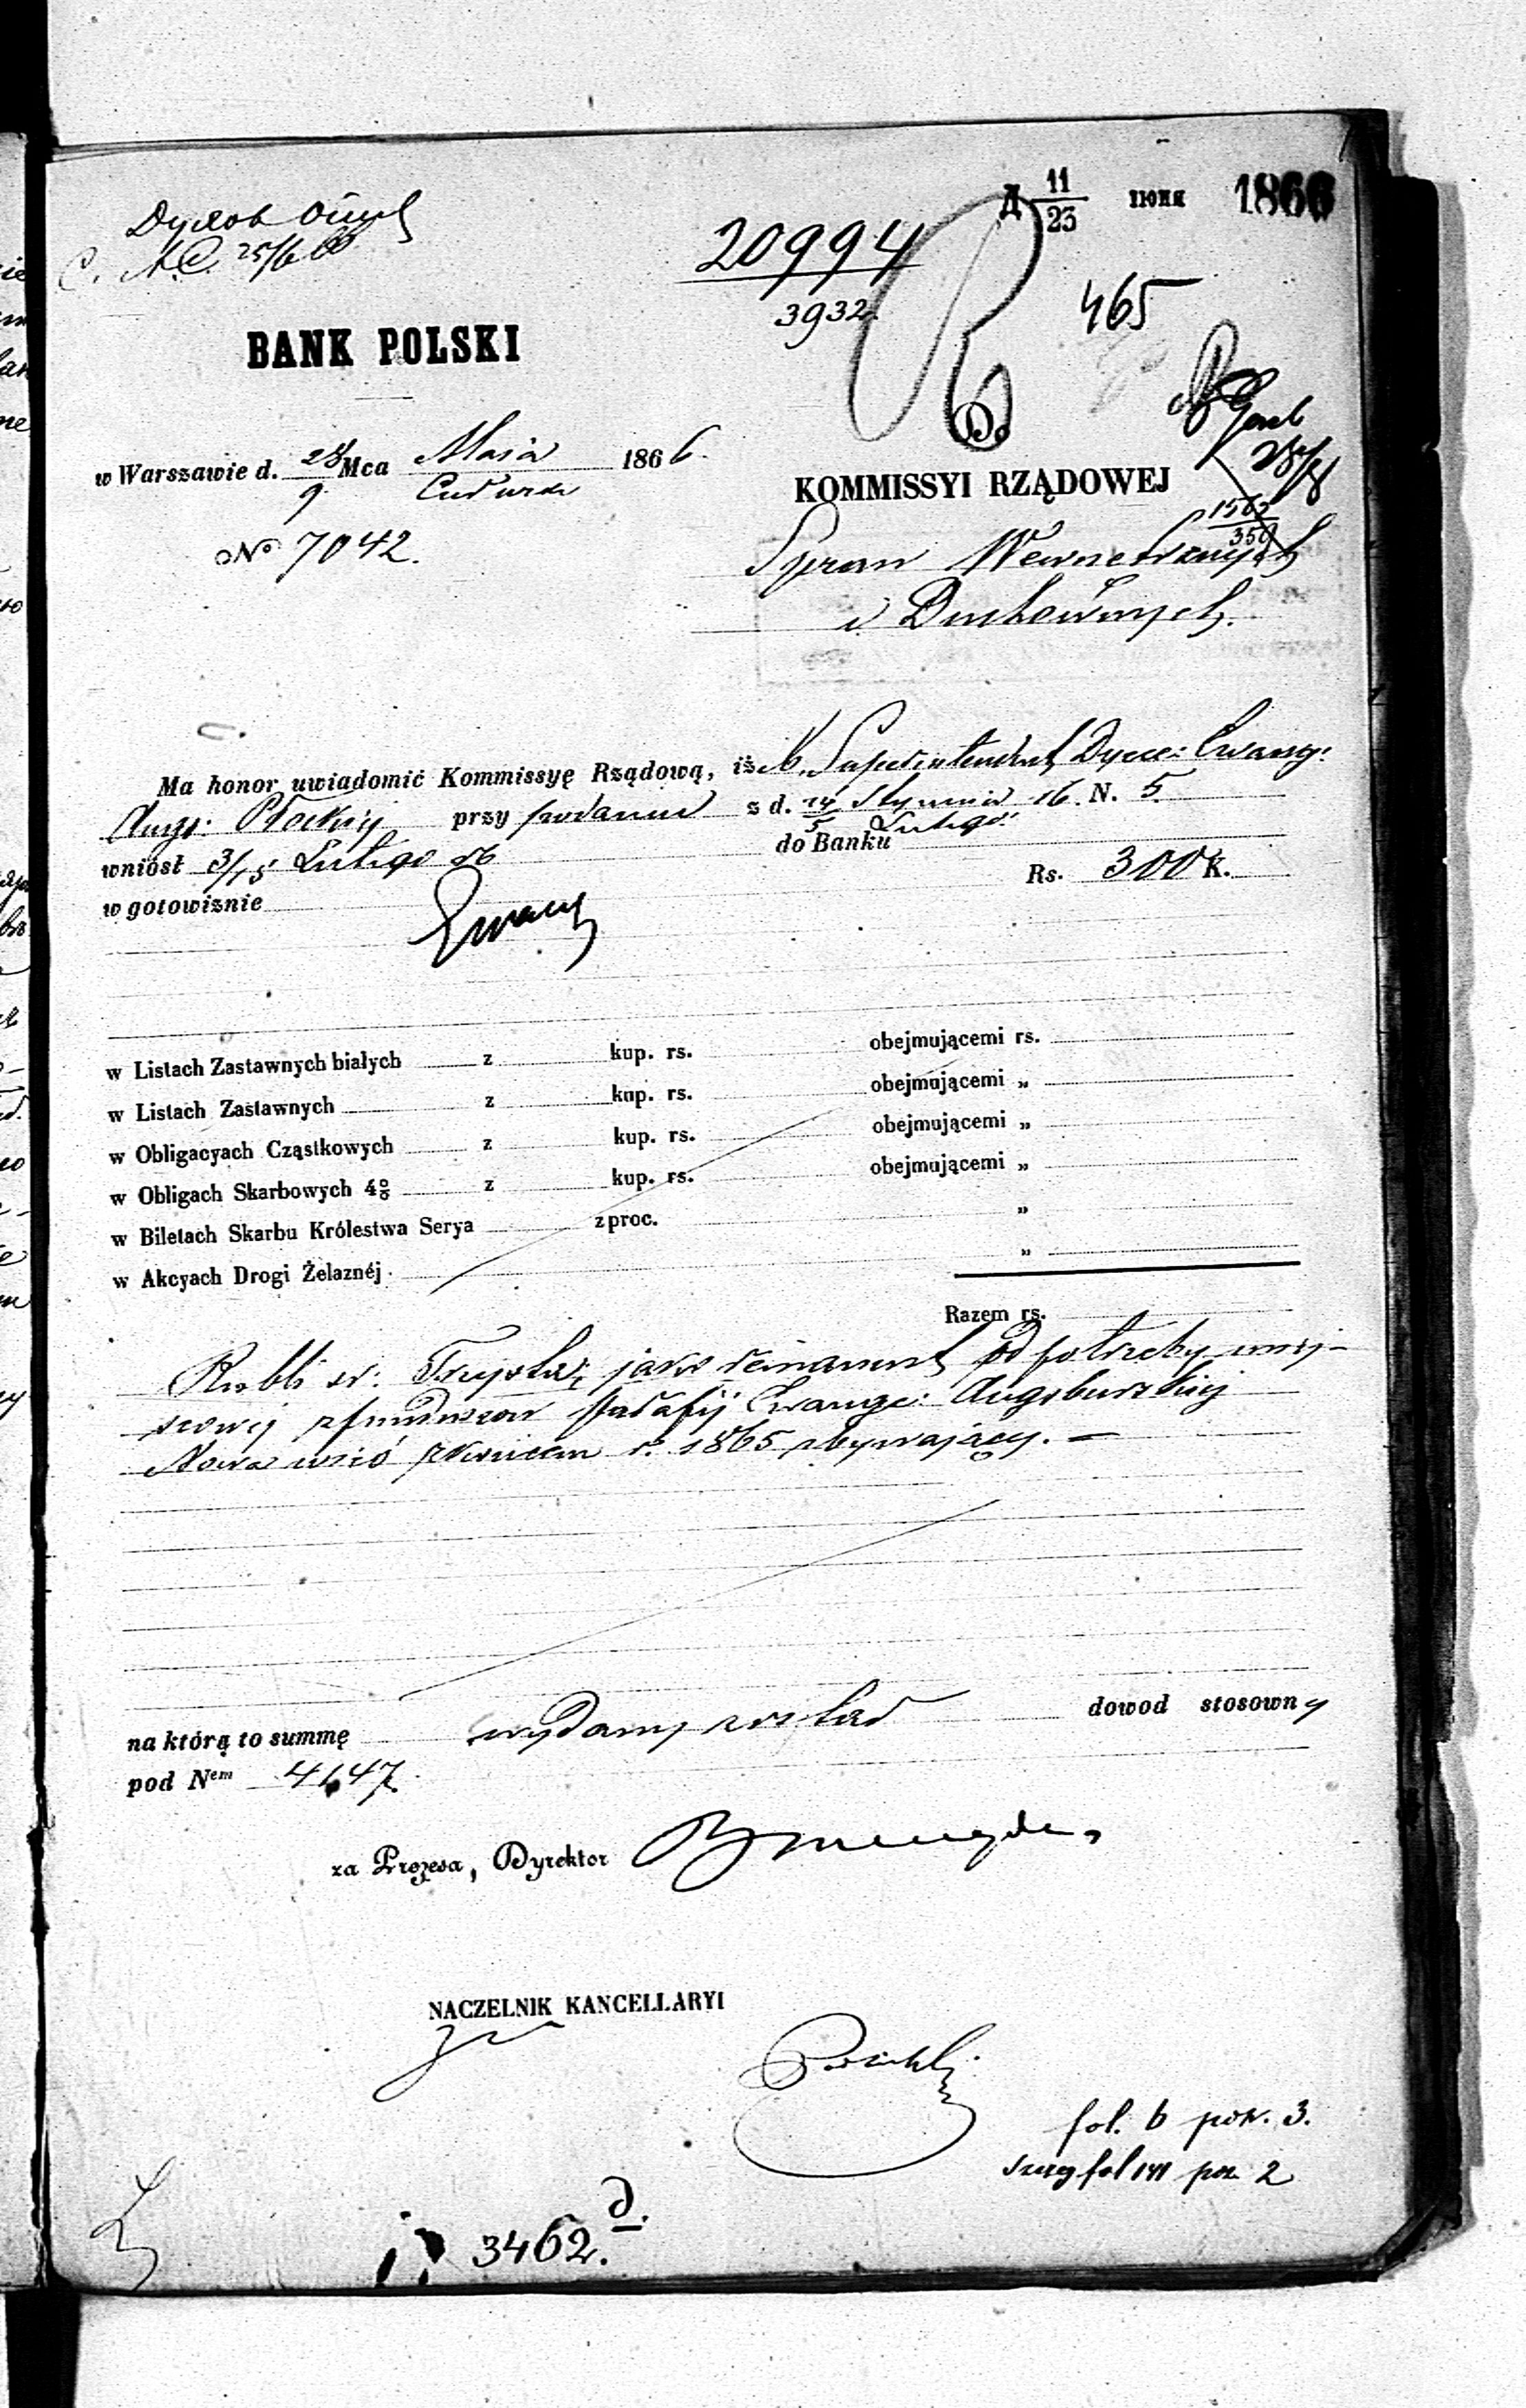 Д 11/23 ІЮНЯ 1866
С. 25/6 66
20994
3932.
465
BANK POLSKI
Do
w Warszawie d. 28/9 Mca Maja/Czerwca 1866.
KOMMISSYI RZĄDOWEJ
No 7042.
Spraw Wewnetrznych
i Duchownych.
Ma honor uwiadomić Kommissyę Rządową, iż X. Superintendent Dyec: Ewang:
Augs: Płockiej przy podaniu z d. 24/5 Stycznia/Lutego rb. N. 5.
wniósł 3/15 Lutego rb do Banku
w gotowiznie Rs. 300 K.
w Listach Zastawnych białych z kup. rs. obejmującemi rs.
w Listach Zastawnych z kup. rs. obejmującemi „
w Obligacyach Cząstkowych z kup. rs. obejmującemi „
w Obligach Skarbowych 4% z kup. rs. obejmującemi „
w Biletach Skarbu Królestwa Serya z proc. „
w Akcyach Drogi Żelaznéj „
Razem rs.
Rubli sr: Trzysta, jako remanent od potrzeby miej-
scowej z funduszow parafij Ewange: Augsburskiej
Nowa wieś z końcem r. 1865 zbywający. —
na którą to summę wydany został dowod stosowny
pod Nem 4147.
za Prezesa, Dyrektor
NACZELNIK KANCELLARYI
fol. 6 poz. 3.
fol 141 poz 2
3462. d.